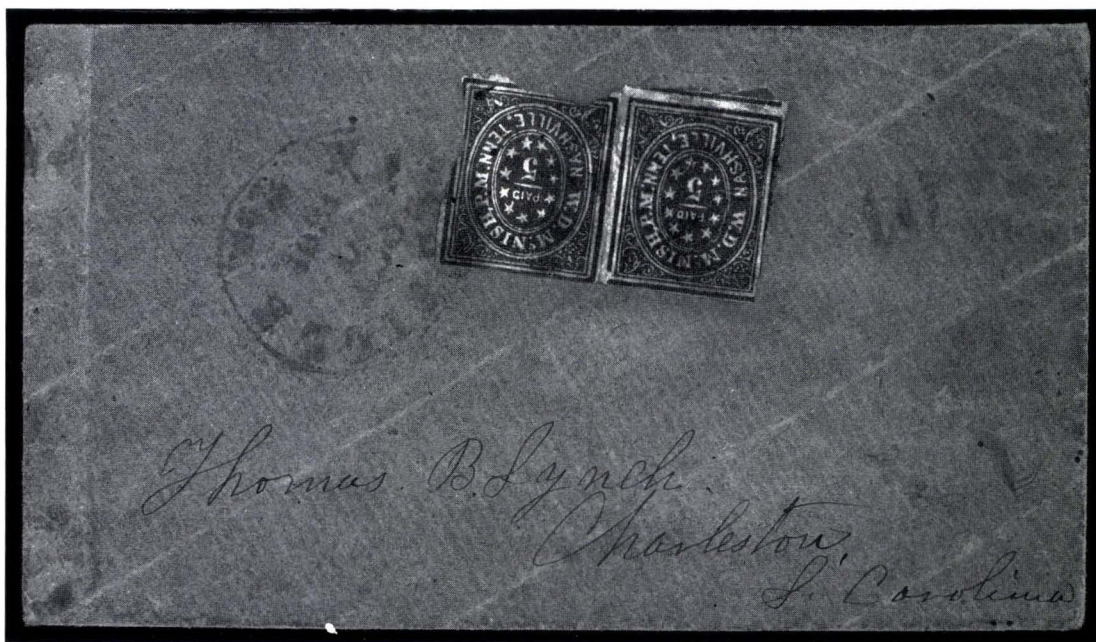 W.D. McNISH. P.M. NASHVILLE, TENN.
PAID
5
W.D. McNISH. P.M. NASHVILLE, TENN.
PAID
5
Thomas B. Lynch.
Charleston,
S. Carolina